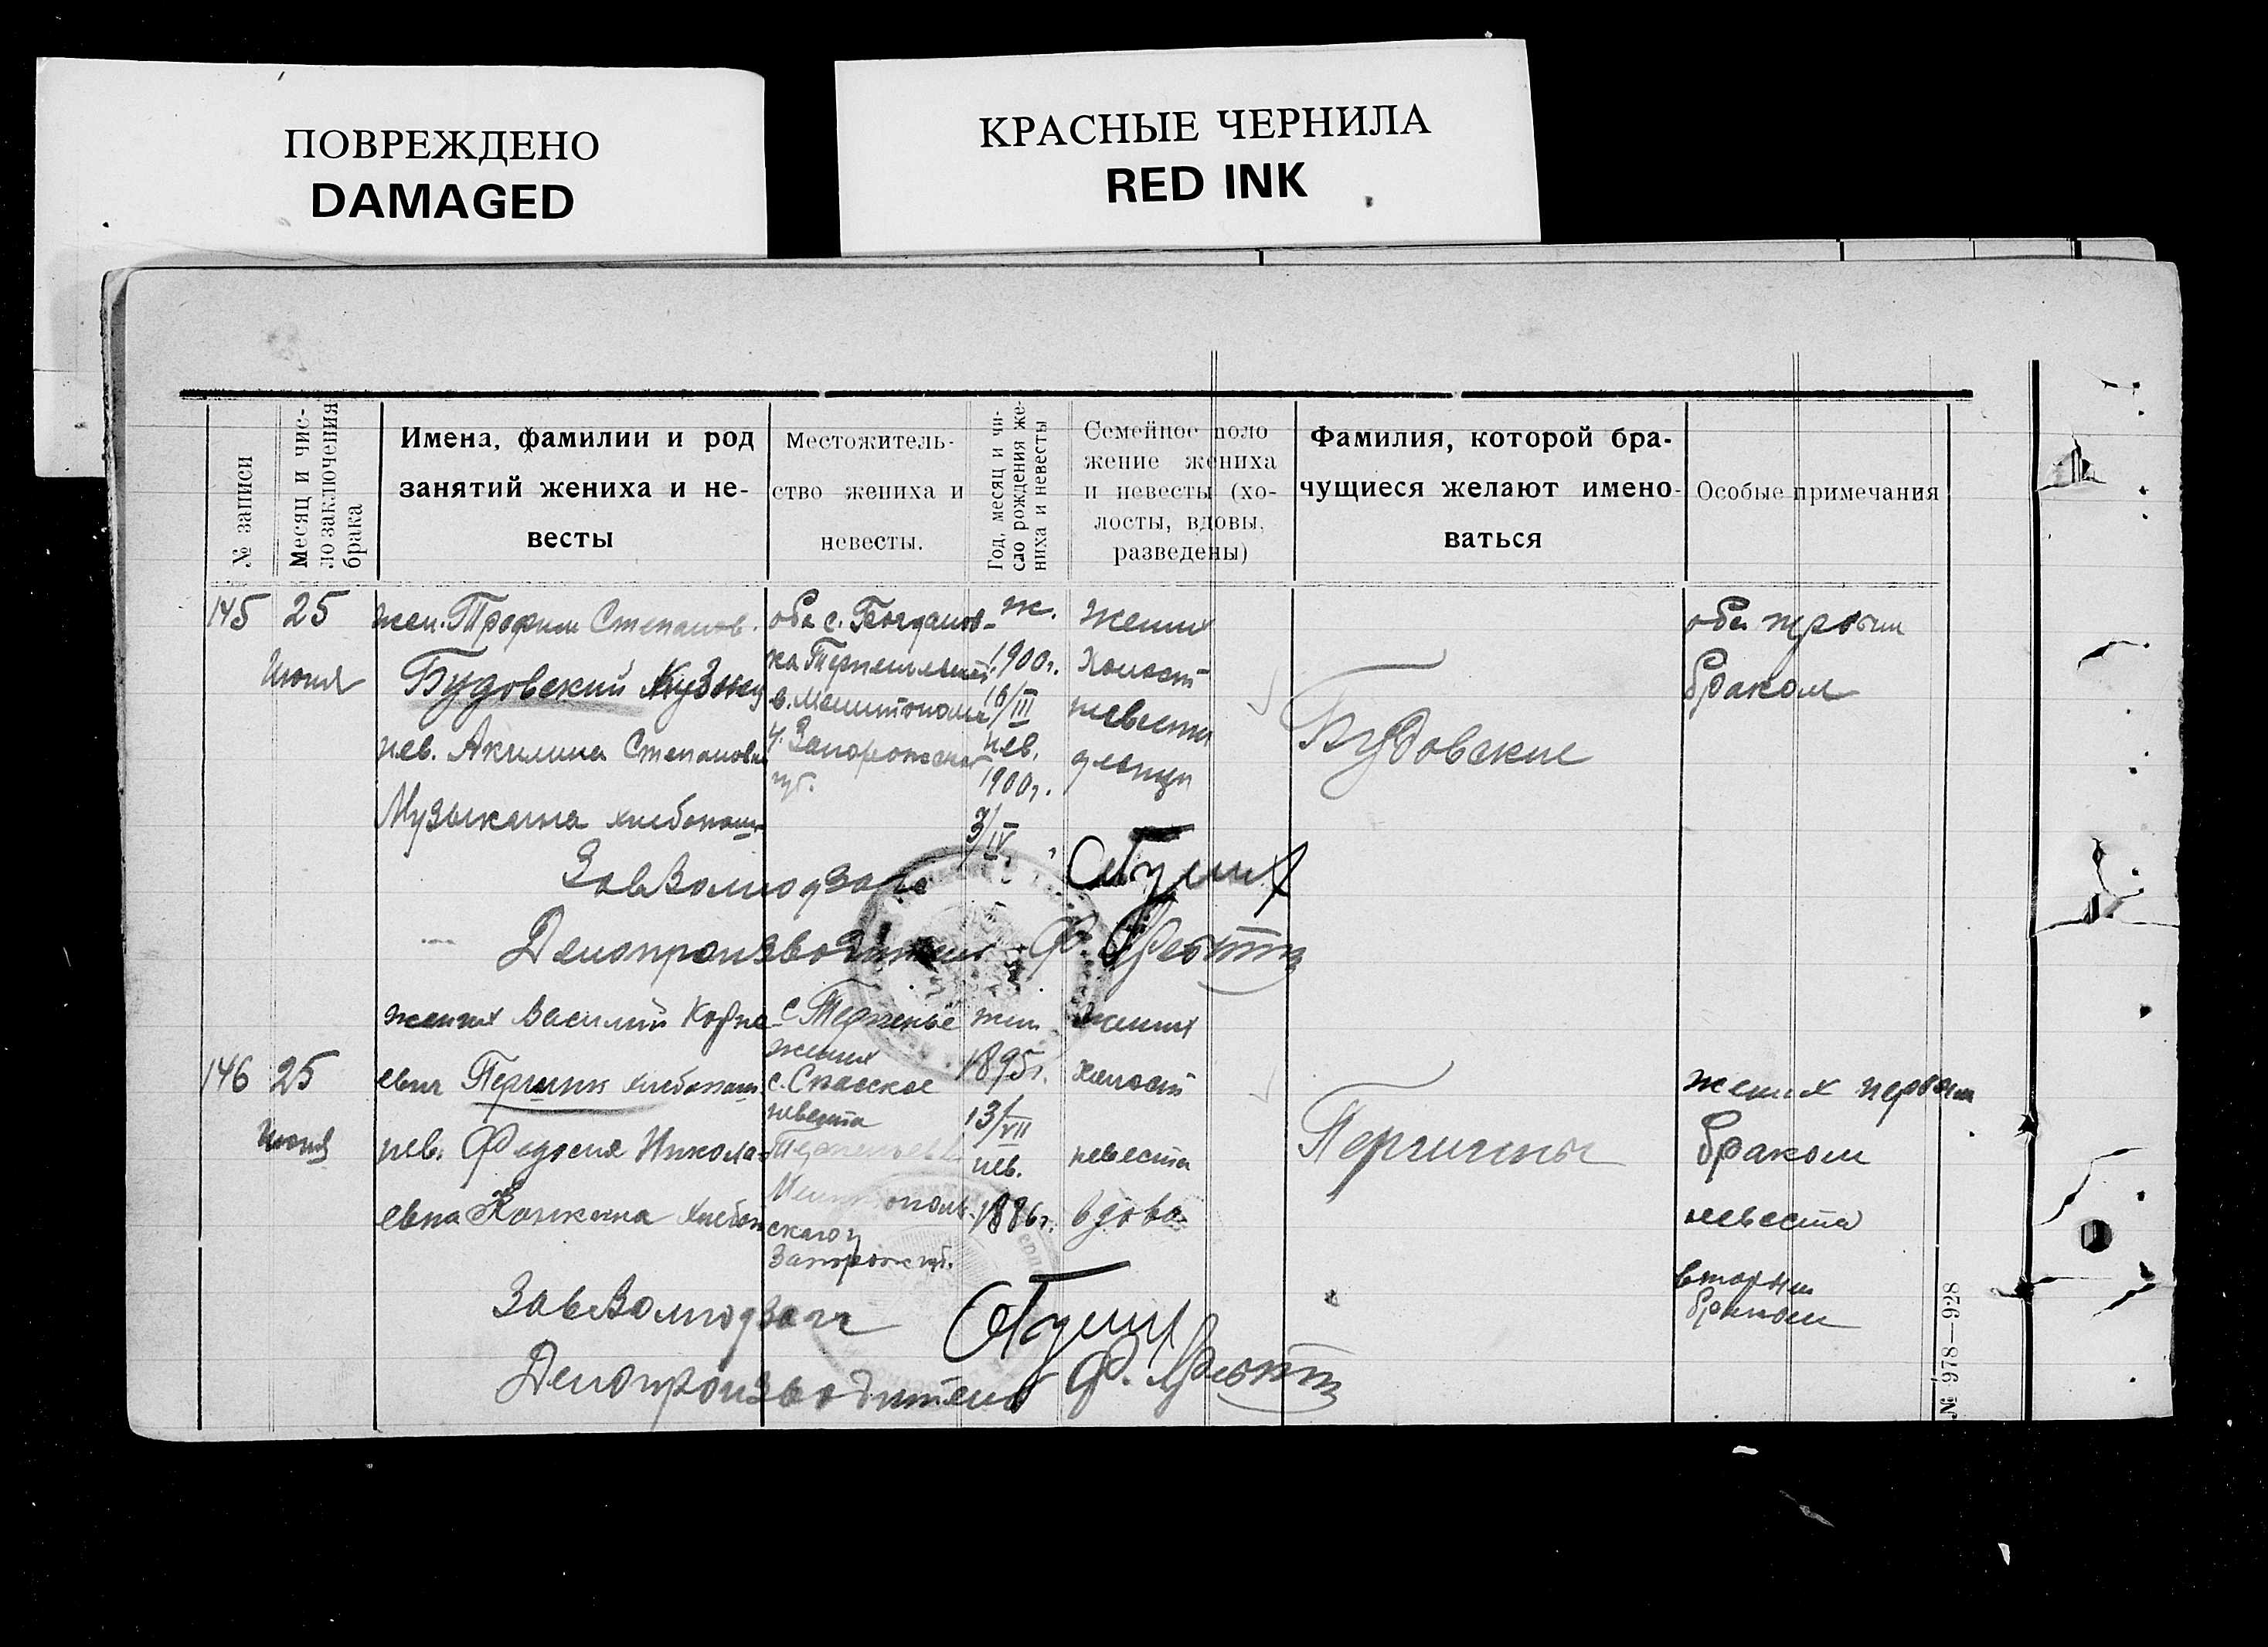 ПОВРЕЖДЕНО
DAMAGED
КРАСНЫЕ ЧЕРНИЛА
RED INK
№ записи
Месяц и чис-
ло заключения
брака
Имена, фамилии и род
занятий жениха и не-
весты
Местожитель-
ство жениха и
невесты.
Год, месяц и чи-
сло рождения же-
ниха и невесты
Семейное поло
жение жениха
и невесты (хо-
лосты, вдовы,
разведены)
Фамилия, которой бра-
чущиеся желают имено-
ваться
Особые примечания
145
25
Июня
жен. Трофим Степанов.
Будовский Кузнец
нев. Акилина Степановн
Музыкина хлебопаш
оба с. Богданов-
ка Терпеньевской
в. Мелитополь
у. Запорожской
губ.
ж.
1900г.
16/III
нев.
1900г.
3/IV
Жених
Холост
невеста
девица
Будовские
оба первым
браком
ЗавВолподзагс
Делопроизводитель Ф.
146
25
Июня
жених Василий Корне-
евич Пергинин хлебопаш.
нев. Федосия Никола-
евна Конкина хлебоп
с Терпенье
жених
с. Спасское
невеста
Терпеньев в.
Мелитополь-
скаго у
Запорож губ.
жен
1895г.
13/VII
нев.
1886г.
жених
холост
невеста
вдова
Пергинины
жених первым
браком
невеста
вторым
браком
ЗавВолподзагс
Делопроизводитель Ф.
№ 978—928